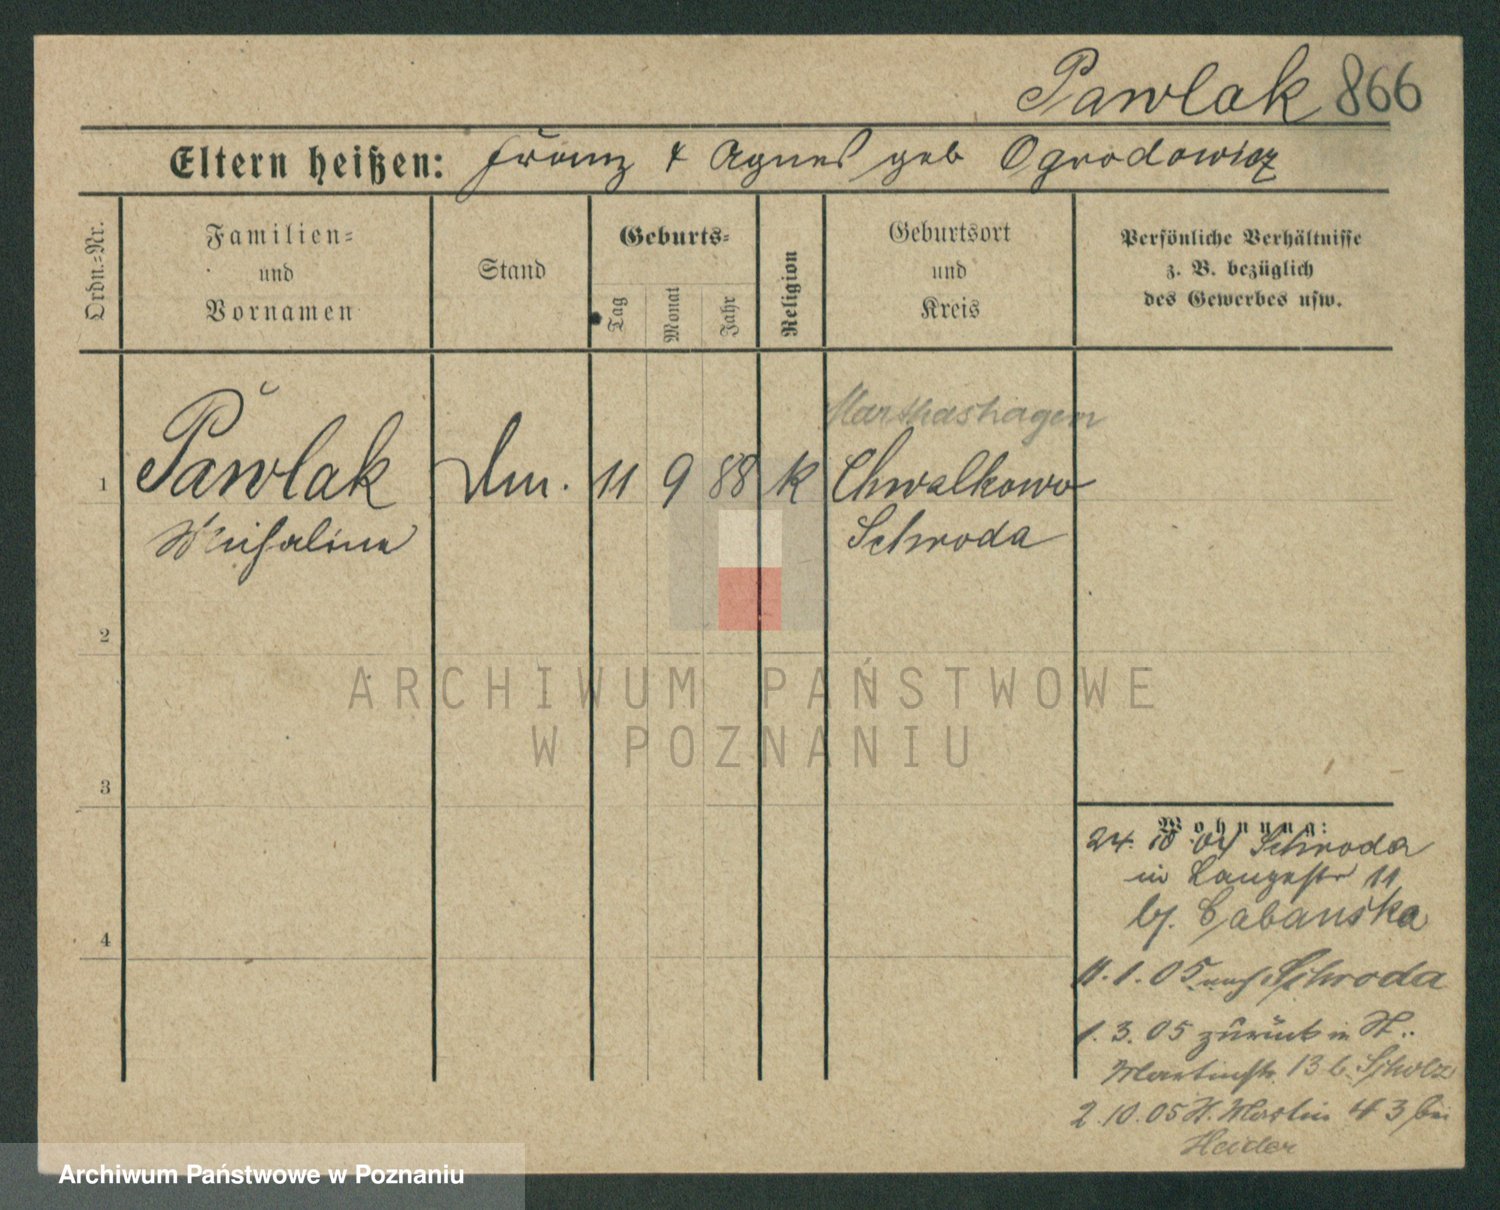 Pawlak 866
Eltern heißen: Franz & Agnes geb Ogrodowicz
Ordn.-Nr.
Familien-
und
Vornamen
Stand
Geburts-
Tag
Monat
Jahr
Religion
Geburtsort
und
Kreis
Persönliche Verhältnisse
z. B. bezüglich
des Gewerbes usw.
Marthashagen
1 Pawlak Dm. 11 9 88 k Chwalkowo
Michaline Schroda
2
3
4
Wohnung:
24. 10 04 Schroda
in Langestr 11
bj. Cabanska
11. 1. 05 nach Schroda
1. 3. 05 zurück in St.
Martinstr. 13 b. Scholz
2. 10. 05 St. Martin 43 bei
Heider
ARCHIWUM PAŃSTWOWE
W POZNANIU
Archiwum Państwowe w Poznaniu